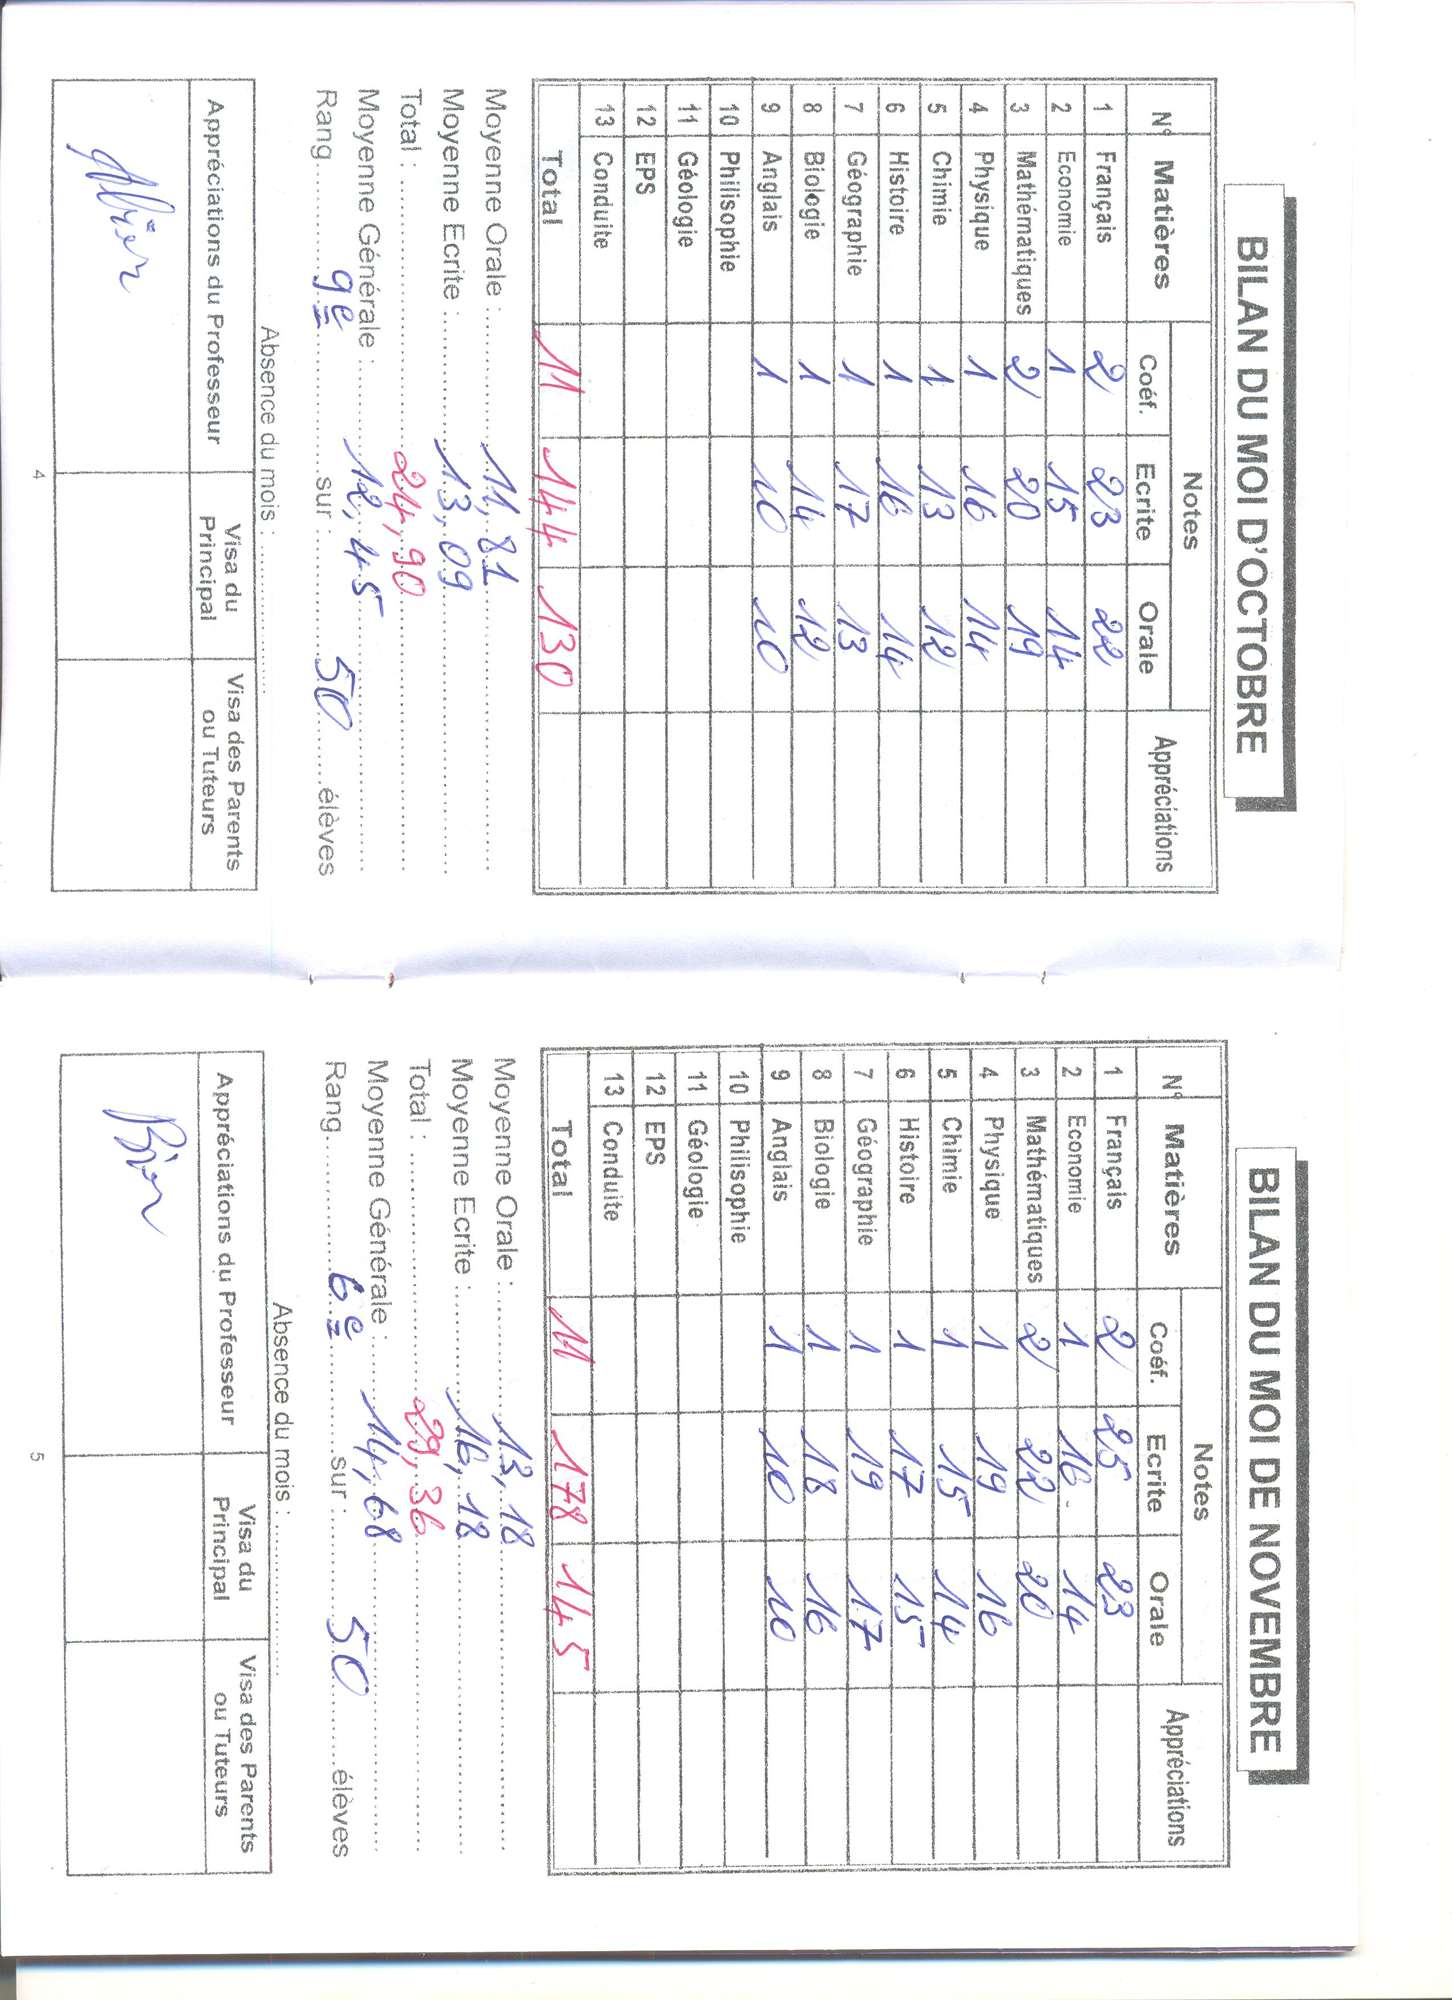 BILAN DU MOI D'OCTOBRE
N° Matières Notes Appréciations
Coéf. Ecrite Orale
1 Français 2 23 22
2 Economie 1 15 14
3 Mathématiques 2 20 19
4 Physique 1 16 14
5 Chimie 1 13 12
6 Histoire 1 16 14
7 Géographie 1 17 13
8 Biologie 1 14 12
9 Anglais 1 10 10
10 Philisophie
11 Géologie
12 EPS
13 Conduite
Total 11 144 130
Moyenne Orale : 11,81
Moyenne Ecrite : 13,09
Total : 24,90
Moyenne Générale : 12,45
Rang 9e sur : 50 élèves
Absence du mois :
Appréciations du Professeur Visa du Principal Visa des Parents ou Tuteurs
4
BILAN DU MOI DE NOVEMBRE
N° Matières Notes Appréciations
Coéf. Ecrite Orale
1 Français 2 25 23
2 Economie 1 16 14
3 Mathématiques 2 22 20
4 Physique 1 19 16
5 Chimie 1 15 14
6 Histoire 1 17 15
7 Géographie 1 19 17
8 Biologie 1 18 16
9 Anglais 1 10 10
10 Philisophie
11 Géologie
12 EPS
13 Conduite
Total 11 178 145
Moyenne Orale : 13,18
Moyenne Ecrite : 16,18
Total : 29,36
Moyenne Générale : 14,68
Rang 6e sur : 50 élèves
Absence du mois :
Appréciations du Professeur Visa du Principal Visa des Parents ou Tuteurs
Bien
5